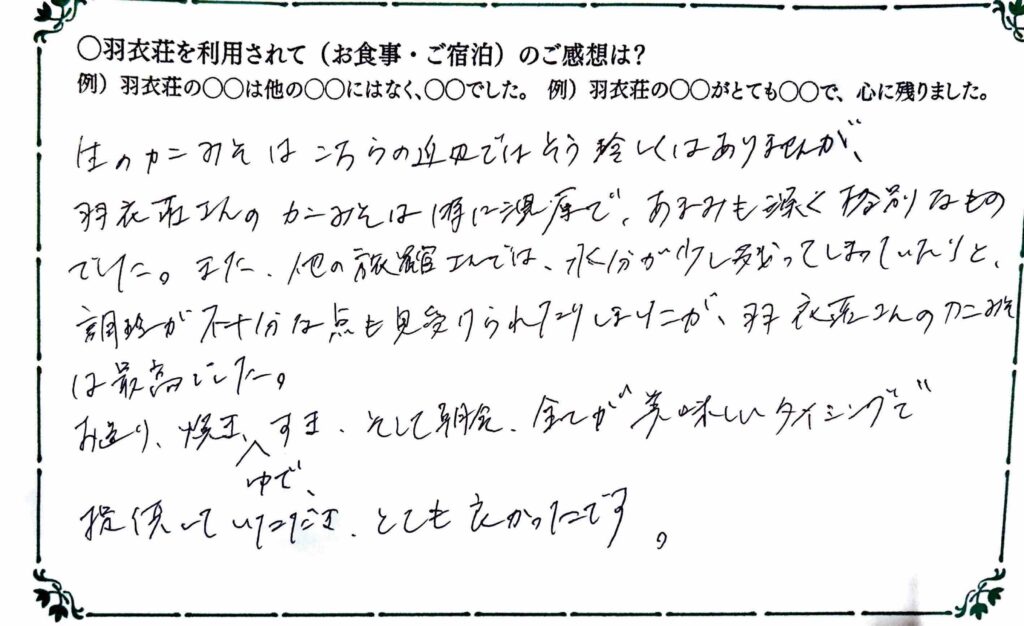 〇羽衣荘を利用されて（お食事・ご宿泊）のご感想は？
例）羽衣荘の〇〇は他の〇〇にはなく、〇〇でした。 例）羽衣荘の〇〇がとても〇〇で、心に残りました。
生のカニみそはこちらの近辺ではそう珍しくはありませんが、
羽衣荘さんのカニみそは特に濃厚で、あまみも深く格別なもの
でした。また、他の旅館さんでは、水分が少し残ってしまっていたりと、
調理が不十分な点も見受けられたりしましたが、羽衣荘さんのカニみそ
は最高でした。
お造り、焼き、すき、そして朝食、全てが美味しいタイミングで
ゆで、
提供していただき、とても良かったです。